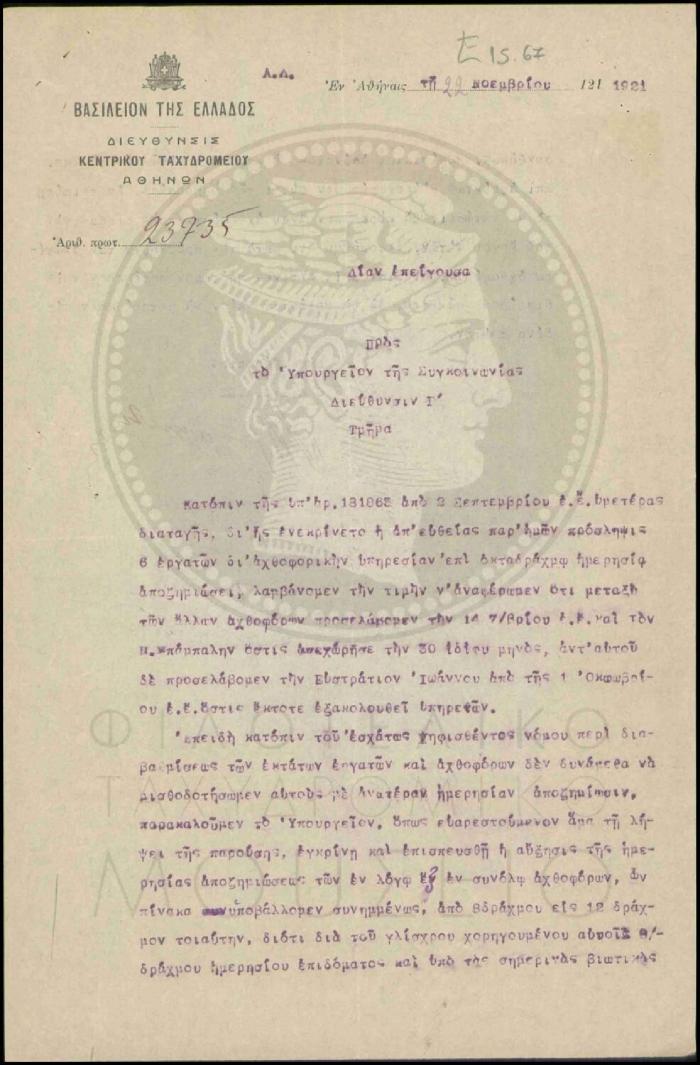 Ε 15.67
Α.Δ.
Ἐν Ἀθήναις τῇ 22 Νοεμβρίου 121 1921
ΒΑΣΙΛΕΙΟΝ ΤΗΣ ΕΛΛΑΔΟΣ
ΔΙΕΥΘΥΝΣΙΣ
ΚΕΝΤΡΙΚΟΥ ΤΑΧΥΔΡΟΜΕΙΟΥ
ΑΘΗΝΩΝ
Ἀριθ. πρωτ. 23735
Λίαν ἐπείγουσα
Πρὸς
τὸ Ὑπουργεῖον τῆς Συγκοινωνίας
Διεύθυνσιν Γ'
Τμῆμα
Κατόπιν τῆς ὑπ'ἀρ.131863 ἀπὸ 2 Σεπτεμβρίου ἐ.ἔ.ὑμετέρας
διαταγῆς, δι'ἧς ἐνεκρίνετο ἡ ἀπ'εὐθείας παρ'ἡμῶν πρόσληψις
6 ἐργατῶν δι'ἀχθοφορικὴν ὑπηρεσίαν ἐπὶ ὀκταδράχμῳ ἡμερησίᾳ
ἀποζημιώσει, λαμβάνομεν τὴν τιμὴν ν'ἀναφέρωμεν ὅτι μεταξὺ
τῶν ἄλλων ἀχθοφόρων προσελάβομεν τὴν 14 7/βρίου ἐ.ἔ.καὶ τὸν
Ν.Μπόμπαλην ὅστις ἀπεχώρησε τὴν 30 ἰδίου μηνὸς, ἀντ'αὐτοῦ
δὲ προσελάβομεν τὴν Εὐστράτιον Ἰωάννου ἀπὸ τῆς 1 Ὀκτωβρί-
ου ἐ.ἔ.ὅστις ἔκτοτε ἐξακολουθεῖ ὑπηρετῶν.
Ἐπειδὴ κατόπιν τοῦ ἐσχάτως ψηφισθέντος νόμου περὶ δια-
βαθμίσεως τῶν ἐκτάτων ἐργατῶν καὶ ἀχθοφόρων δὲν δυνάμεθα νὰ
μισθοδοτήσωμεν αὐτοὺς μὲ ἀνωτέραν ἡμερησίαν ἀποζημίωσιν,
παρακαλοῦμεν τὸ Ὑπουργεῖον, ὅπως εὐαρεστούμενον ἅμα τῇ λή-
ψει τῆς παρούσης, ἐγκρίνῃ καὶ ἐπισπευσθῇ ἡ αὔξησις τῆς ἡμε-
ρησίας ἀποζημιώσεως τῶν ἐν λόγῳ ἓξ ἐν συνόλῳ ἀχθοφόρων, ὧν
πίνακα συνυποβάλλομεν συνημμένως, ἀπὸ 8δράχμου εἰς 12 δράχ-
μον τοιαύτην, διότι διὰ τοῦ γλίσχρου χορηγουμένου αὐτοῖς 8/-
δράχμου ἡμερησίου ἐπιδόματος καὶ ὑπὸ τὰς σημερινὰς βιωτικὰς
ΦΙΛΟΤΕΛΙΚΟ
ΤΑΧΥΔΡΟΜΙΚΟ
ΜΟΥΣΕΙΟ